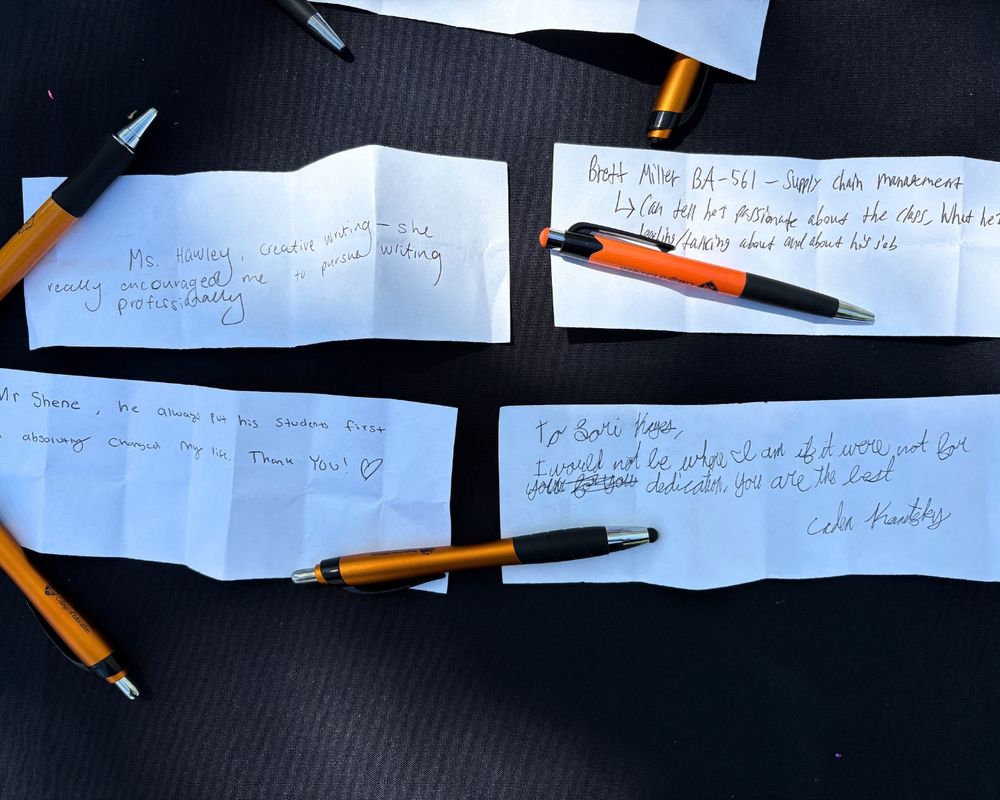 Ms. Hawley, creative writing – she
really encouraged me to pursue writing
professionally
Brett Miller BA-561 – Supply chain management
↳ Can tell he's passionate about the class, what he's
teaching/talking about and about his job
College of Education
Mr Shene, he always put his students first
absolutely changed my life. Thank You! ♡
To Lori Keyes,
I would not be where I am if it were not for
your for you dedication, you are the best
Caden
College of Education